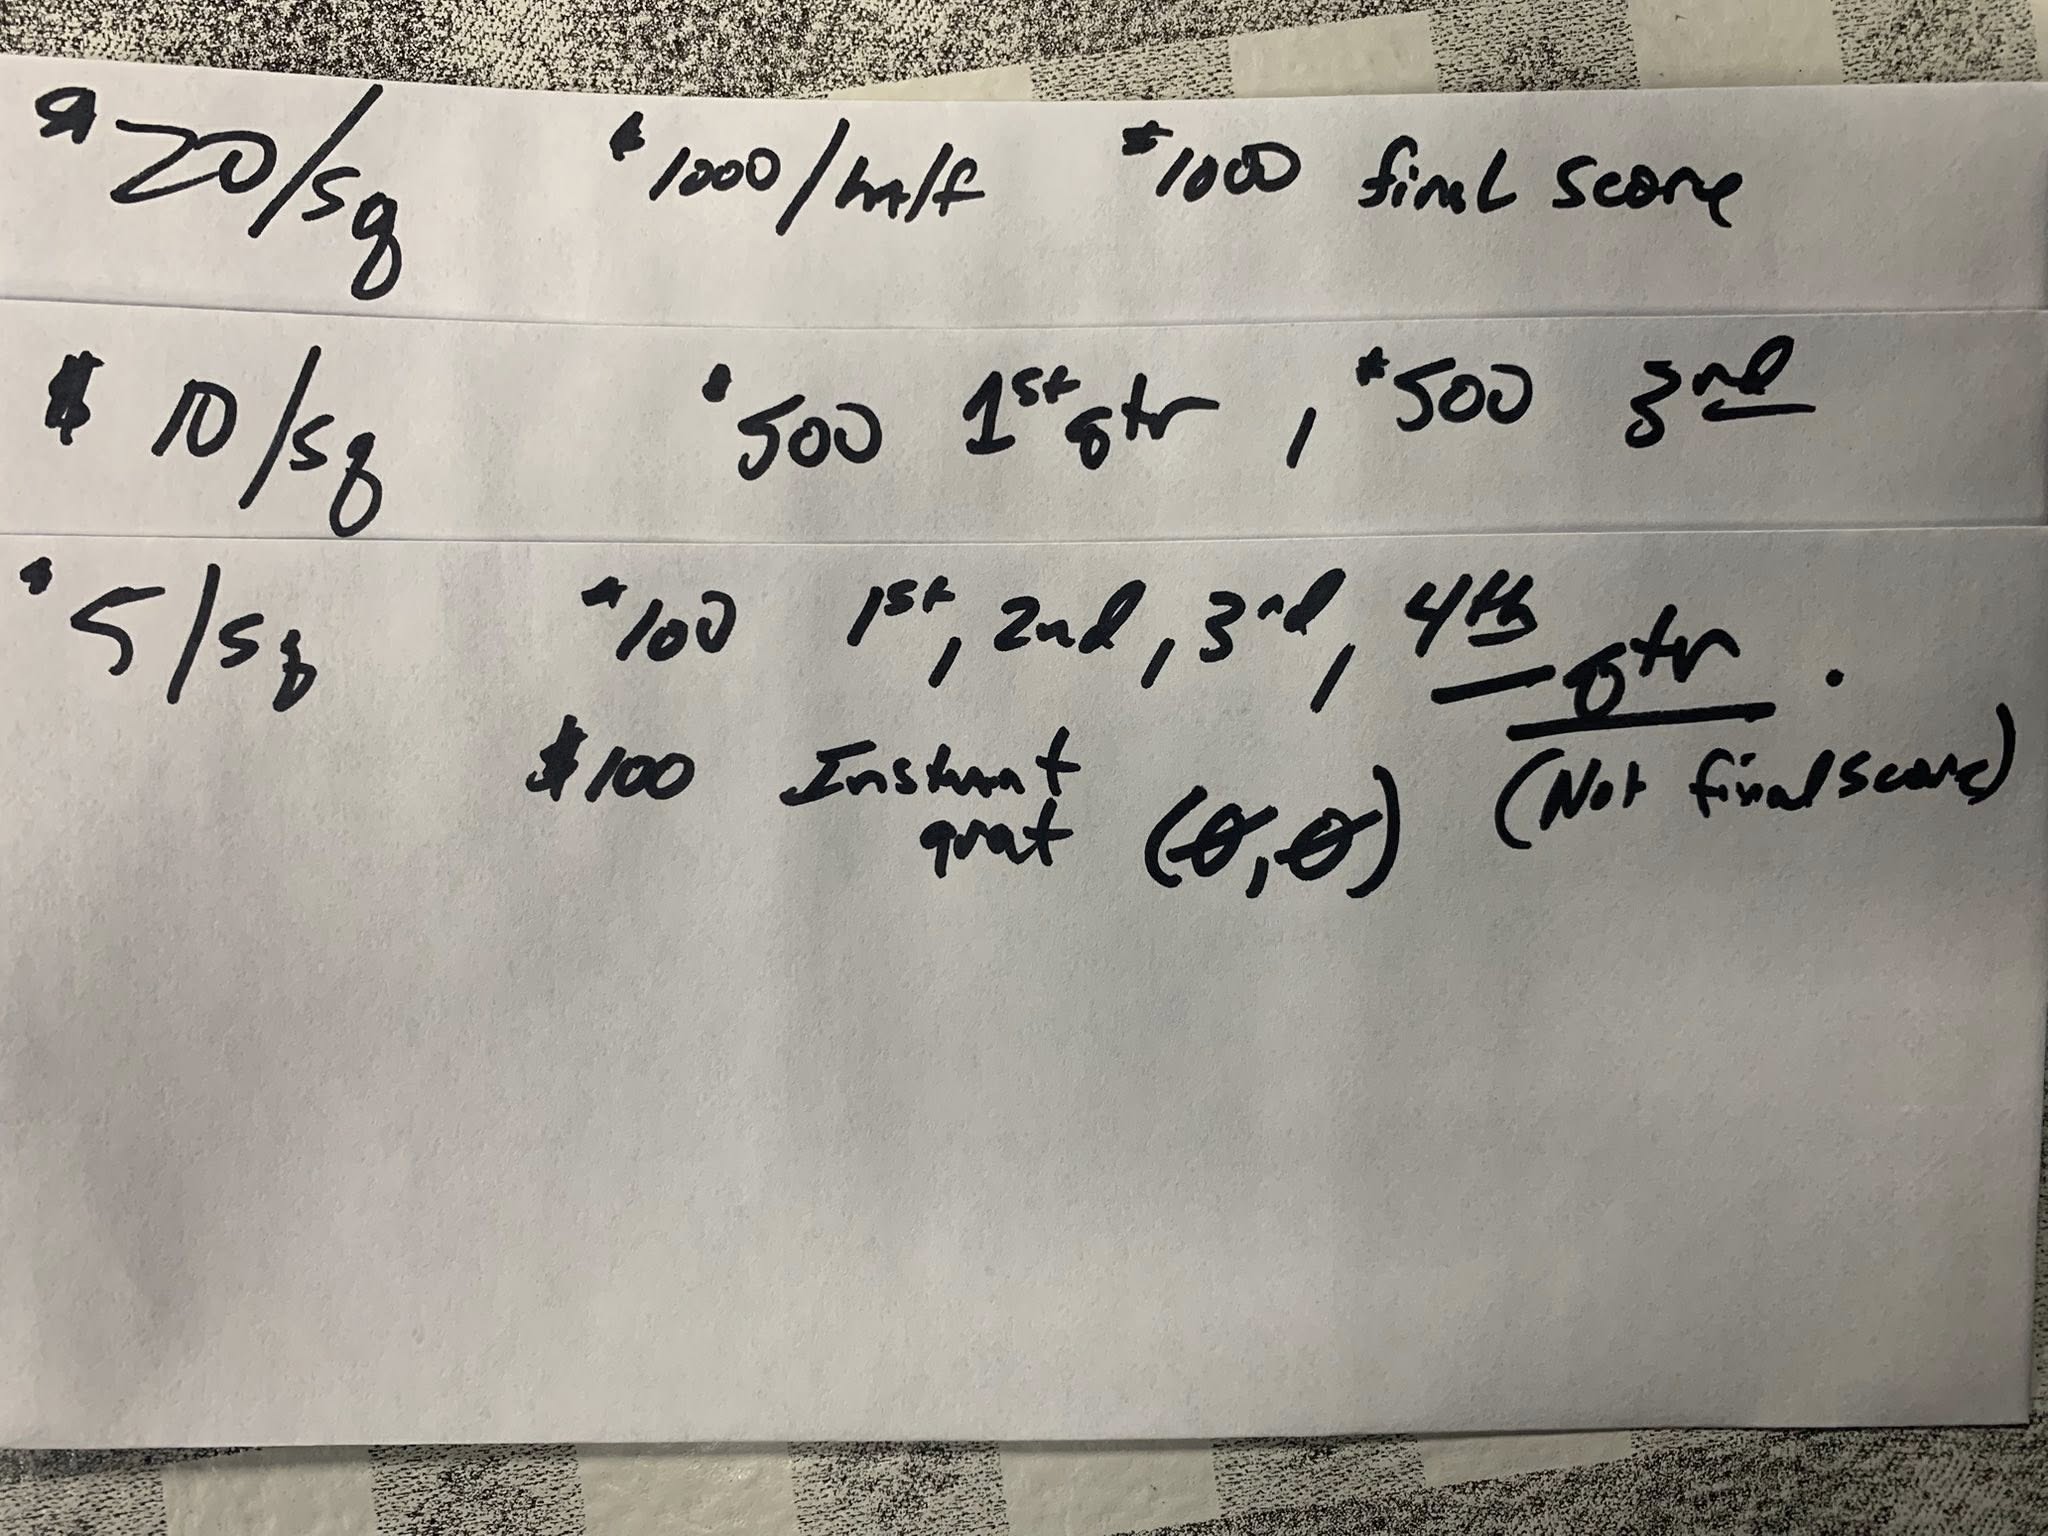 $20/sq $1000/half $1000 final score
$10/sq $500 1st qtr, $500 3rd
$5/sq $100 1st, 2nd, 3rd, 4th qtr.
(Not final score)
$100 Instant
grat (0,0)